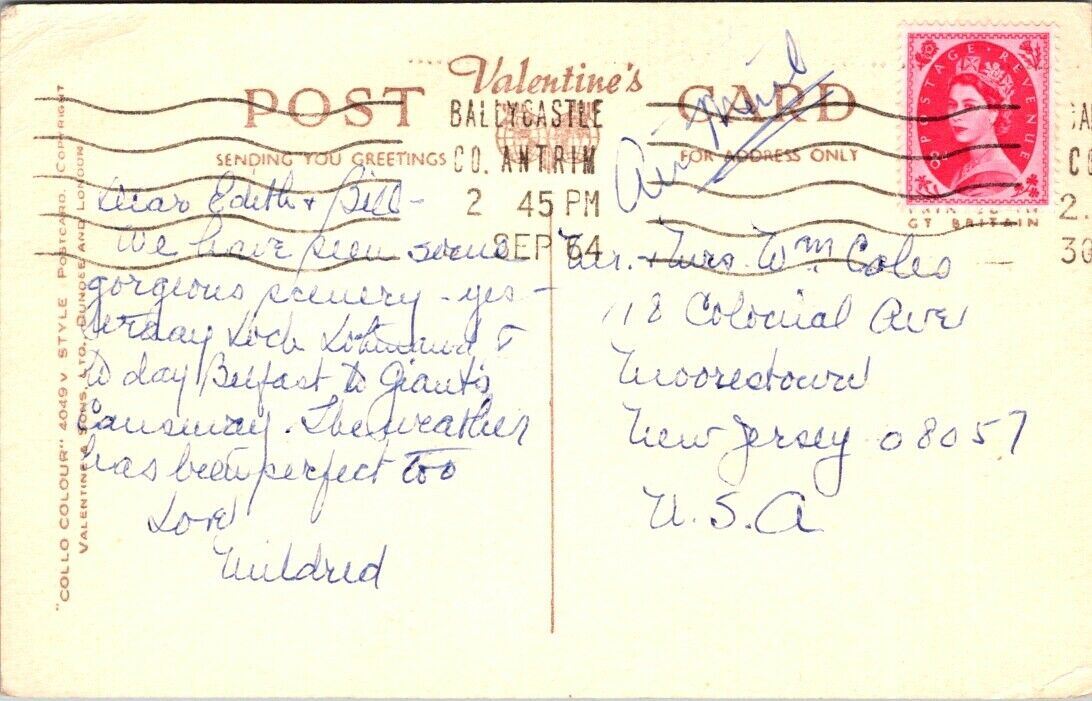 Valentine's
POST CARD
SENDING YOU GREETINGS
FOR ADDRESS ONLY
Air Mail
BALLYCASTLE
CO. ANTRIM
2 45 PM
SEP 64
POSTAGE REVENUE
8D
GT BRITAIN
CO
2
30
Dear Edith & Bill -
We have seen some
gorgeous scenery - yes -
terday Loch Lohmand &
to day Belfast to Giant's
Causeway. The weather
has been perfect too
Love
Mildred
Mr. & Mrs. Wm. Coles
118 Colonial Ave
Moorestown
New Jersey 08057
U.S.A
"COLLO COLOUR" 4049V STYLE POSTCARD. COPYRIGHT
VALENTINE & SONS, LTD., DUNDEE AND LONDON